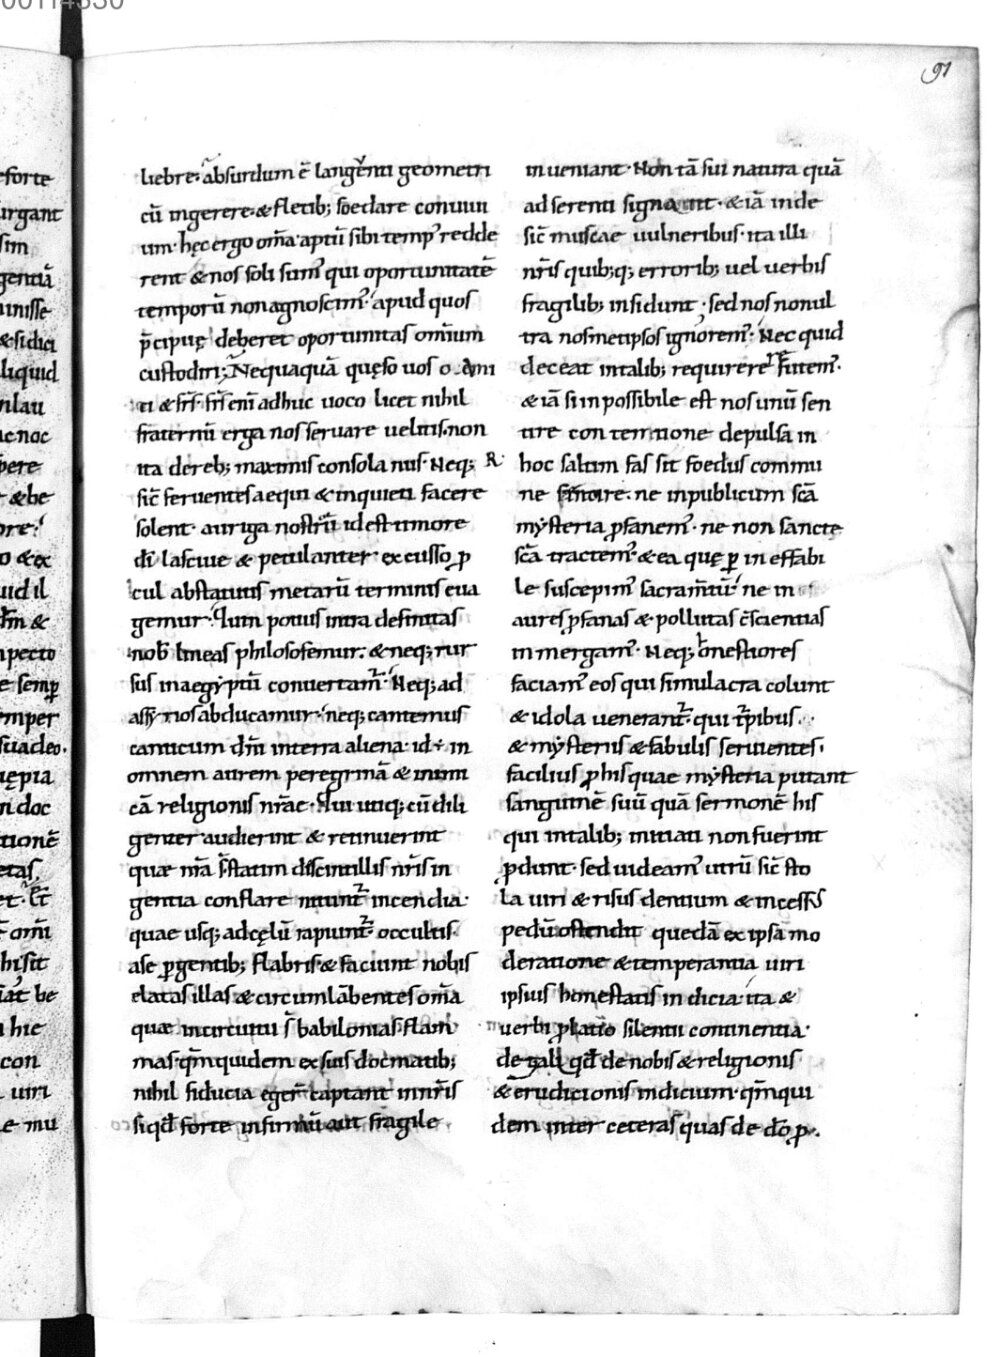 91
liebre. absurdum ē langenti geometri
cū ingerere. & fletib; foedare conuiui
um. hęc ergo om̄a aptū sibi temp' redde
rent & nos soli sum' qui oportunitatē
temporū non agnoscim'. apud quos
p̄cipuę deberet oportunitas om̄ium
custodiri. Nequaquā quęso uos o. ami
ci & frs̄. frs̄ eni adhuc uoco licet nihil
fraternū erga nos seruare uelitis. non
ita dereb; maximis consola nur. Neq;
sic̄ feruentes aequi & inquieti facere
solent. auriga nostrū id est timore
dī lasciue & petulanter excusso p
cul abstatutis metarū terminis eua
gemur. Qum potius intra definitas
nob̄ lineas philosofemur. & neq; rur
sus inaegyptū conuertam'. Neq; ad
assyrios abducamur. neq; cantemus
canticum dn̄i interra aliena. id ÷ in
omnem aurem peregrinā & inimi
cā religionis nr̄ae. Qui utiq; cū dili
genter audierint & retinuerint
quae nr̄a s̄. statim descintillis nr̄is in
gentia conflare nitunt' incendia.
quae usq; adcęlū rapiunt' occultis.
ase pergentib; flabris. & faciunt nobis
elatas illas & circumlābentes om̄a
quae incircuitu s̄ babilonias flam
mas. qm̄ quidem exsuis docmatib;
nihil fiducia eger̄ captant innr̄is
siqd̄ forte infirmū aut fragile
inueniant. Non tā sui natura quā
ad serenti signa int. & iā inde
sic̄ muscae uulneribus. ita illi
nr̄is quib;q; errorib; uel uerbis
fragilib; insidunt. sed nos nonul
tra nosmetipsos ignorem'. Nec quid
deceat intalib; requirere frutem'.
& iā si inpossibile est nos unū sen
tire contentione depulsa in
R hoc saltim fas sit foedus commu
ne sancire. ne inpublicum scā
mysteria p̱fanem'. ne non sancte
scā tractem' & ea quę p̱ ineffabi
le suscepim' sacram̄tū. ne in
aures p̱fanas & pollutas c̄scientias
in mergam'. Neq; honestiores
faciam' eos qui simulacra colunt
& idola uenerant'. qui turpibus.
& mysteriis & fabulis seruientes.
facilius p̱ his quae mysteria putant
sanguinē suū quā sermonē his
qui intalib; initiati non fuerint
p̱dunt. sed uideam' utrū sic̄ sto
la uiri & risus dentium & incessus
pedū ostendit quedā ex ipsa mo
deratione & temperantia uiri
ipsius honestatis indicia. ita &
uerbi p̱latio silentii continentia.
de gall qd̄ de nobis & religionis
& erudicionis indicium. qm̄ qui
dem inter ceteras quas de dō p̱.